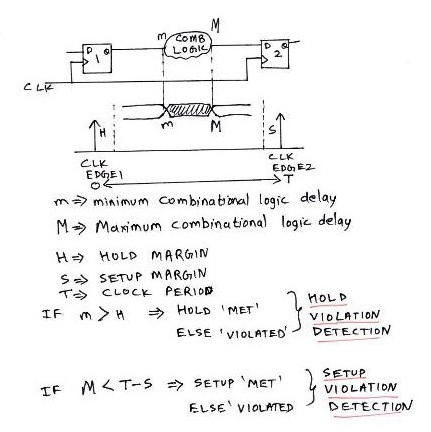 m COMB M
LOGIC
D Q
1
D Q
2
CLK
m M
H
S
CLK
EDGE1
CLK
EDGE2
O T
m => minimum combinational logic delay
M => Maximum combinational logic delay
H => HOLD MARGIN
S => SETUP MARGIN
T => CLOCK PERIOD
IF m > H => HOLD 'MET'
ELSE 'VIOLATED'
HOLD
VIOLATION
DETECTION
IF M < T-S => SETUP 'MET'
ELSE 'VIOLATED
SETUP
VIOLATION
DETECTION